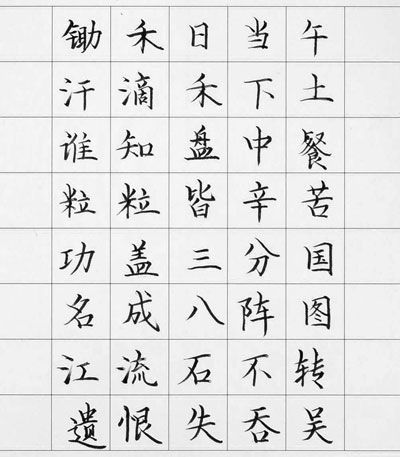 锄禾日当午
汗滴禾下土
谁知盘中餐
粒粒皆辛苦
功盖三分国
名成八阵图
江流石不转
遗恨失吞吴